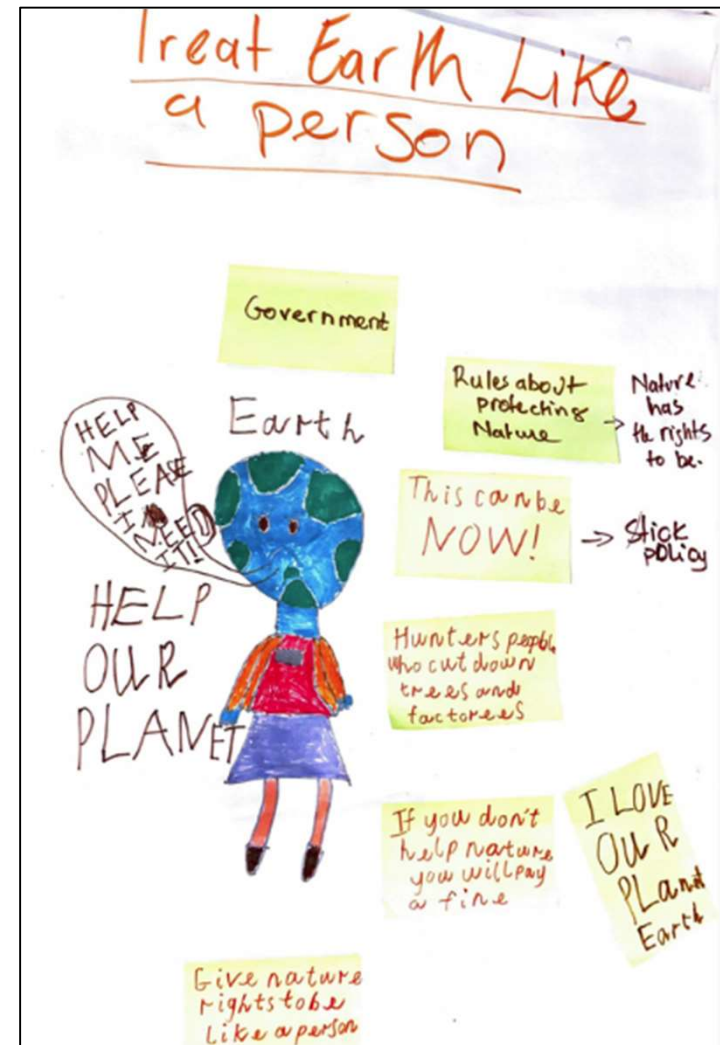 Treat Earth Like
a person
Government
Rules about
protecting
Nature
→ Nature
has
the rights
to be.
Earth
HELP
ME
PLEASE
I
NEED
IT!!
This can be
NOW!
→ Stick
policy
HELP
OUR
PLANET
Hunters people
who cut down
trees and
factorees
If you don't
help nature
you will pay
a fine
I LOVE
OUR
PLanet
Earth
Give nature
rights to be
like a person